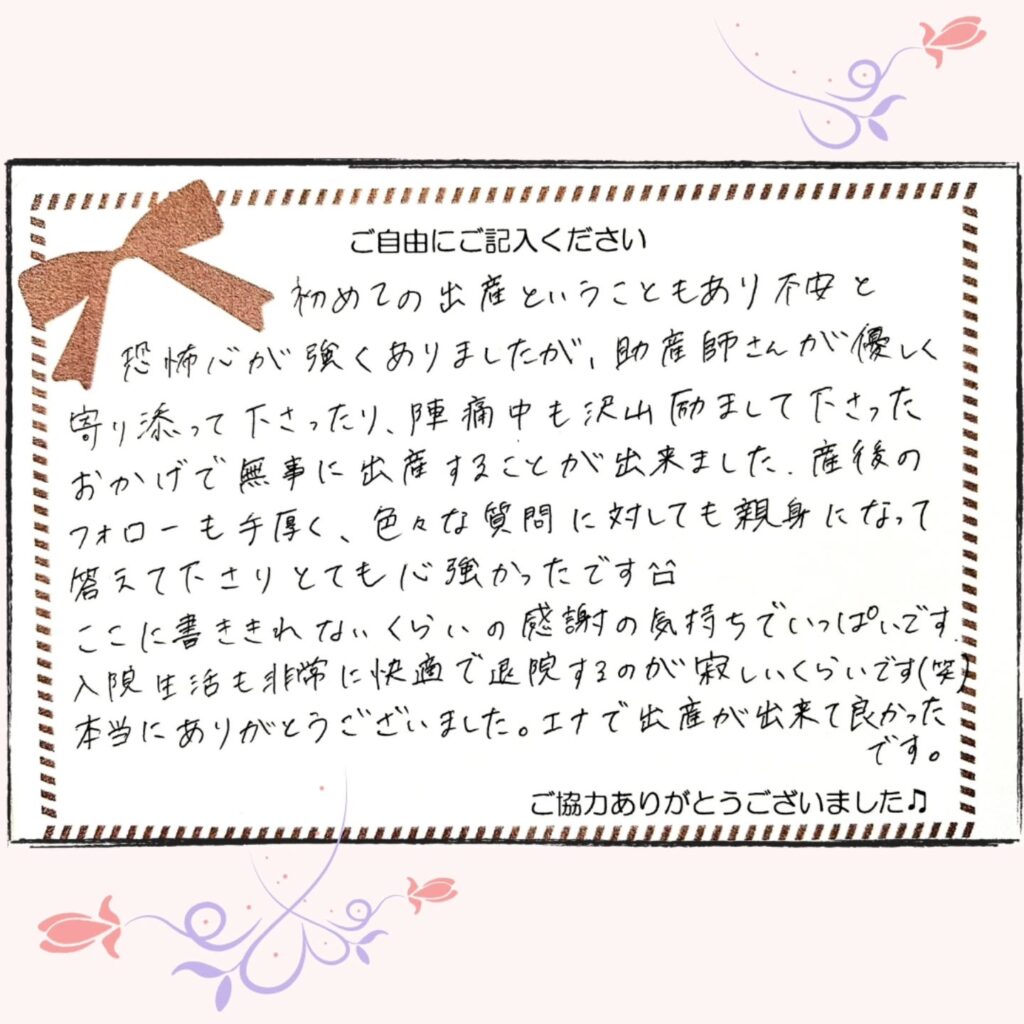 ご自由にご記入ください
初めての出産ということもあり不安と
恐怖心が強くありましたが、助産師さんが優しく
寄り添って下さったり、陣痛中も沢山励まして下さった
おかげで無事に出産することが出来ました。産後の
フォローも手厚く、色々な質問に対しても親身になって
答えて下さりとても心強かったです
ここに書ききれないくらいの感謝の気持ちでいっぱいです。
入院生活も非常に快適で退院するのが寂しいくらいです(笑)
本当にありがとうございました。エナで出産が出来て良かった
です。
ご協力ありがとうございました♫